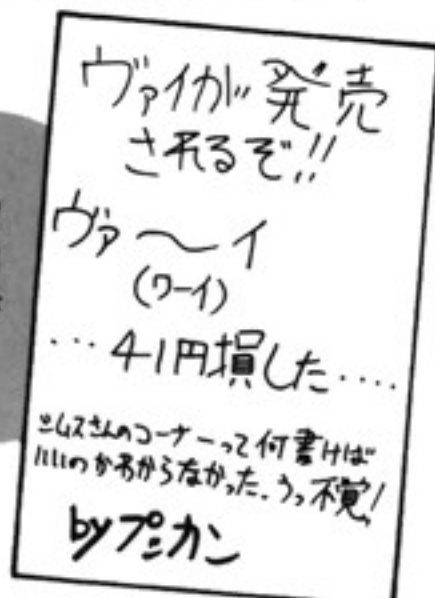 ヴァイが発売
されるぞ!!
ヴァ〜イ
(ワーイ)
…41円損した‥‥
ミムスさんのコーナーって何書けば
いいのかわからなかった、うっ不覚!
byプニカン